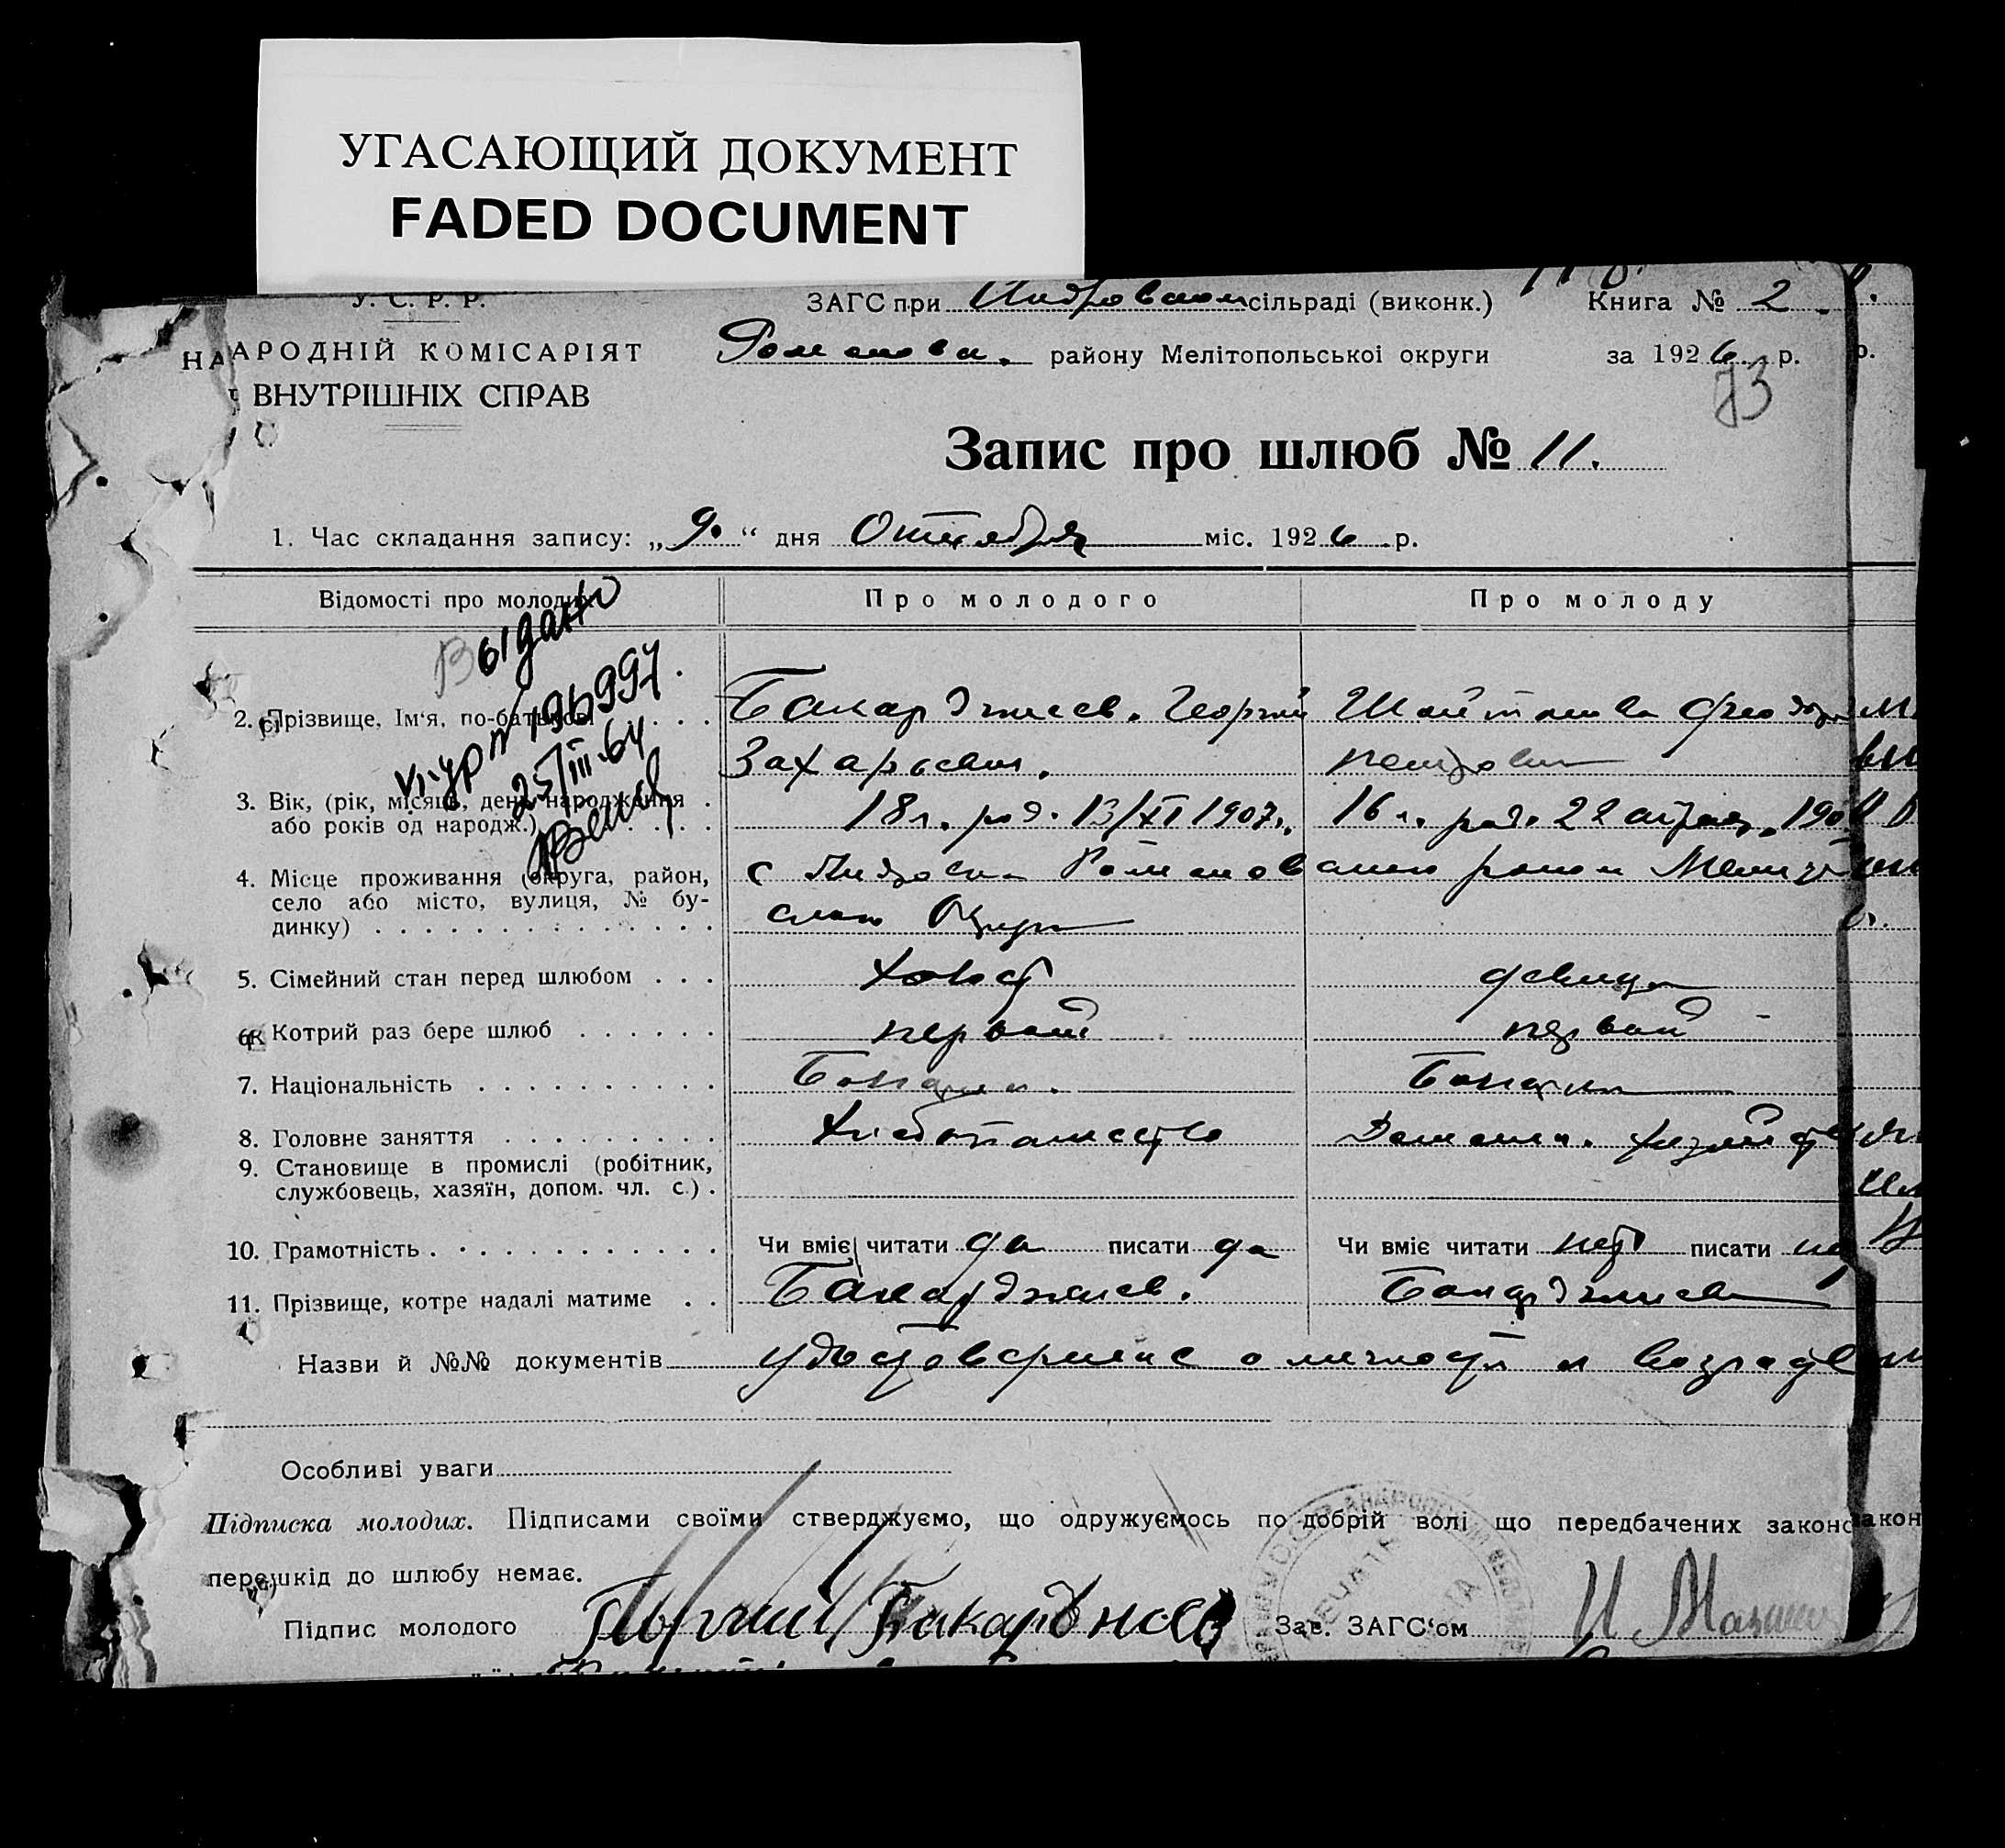 УГАСАЮЩИЙ ДОКУМЕНТ
FADED DOCUMENT
У. С. Р. Р.
НАРОДНІЙ КОМІСАРІЯТ
ВНУТРІШНІХ СПРАВ
ЗАГС при сільраді (виконк.) Книга № 2
району Мелітопольської округи за 1926 р.
73
Запис про шлюб № 11.
1. Час складання запису: „9." дня Октября міс. 1926 р.
Відомості про молодих Про молодого Про молоду
Выдано
№ 196997.
25/III-64
2. Прізвище, Ім'я, по-батькові Бакарджиев. Георгий
Захарьевич.
3. Вік, (рік, місяць, день народження 18 л. род. 13/XI 1907 г. 16 л. род. 22 апрел. 190
або років од народж.)
4. Місце проживання (округа, район, с
село або місто, вулиця, № бу-
динку) Округа
5. Сімейний стан перед шлюбом холост девица
6. Котрий раз бере шлюб первый первый
7. Національність Болгарин. Болгарка
8. Головне заняття Хлебопашество Домашн. хозяйство
9. Становище в промислі (робітник,
службовець, хазяїн, допом. чл. с.)
10. Грамотність Чи вміє читати да писати да Чи вміє читати нет писати
11. Прізвище, котре надалі матиме Бакарджиев. Бакарджиева
Назви й №№ документів удостоверение о личности и возрасте
Особливі уваги
Підписка молодих. Підписами своїми стверджуємо, що одружуємось по добрій волі що передбачених законо
перешкід до шлюбу немає.
Підпис молодого Георгий Бакарджиев Зав. ЗАГС'ом